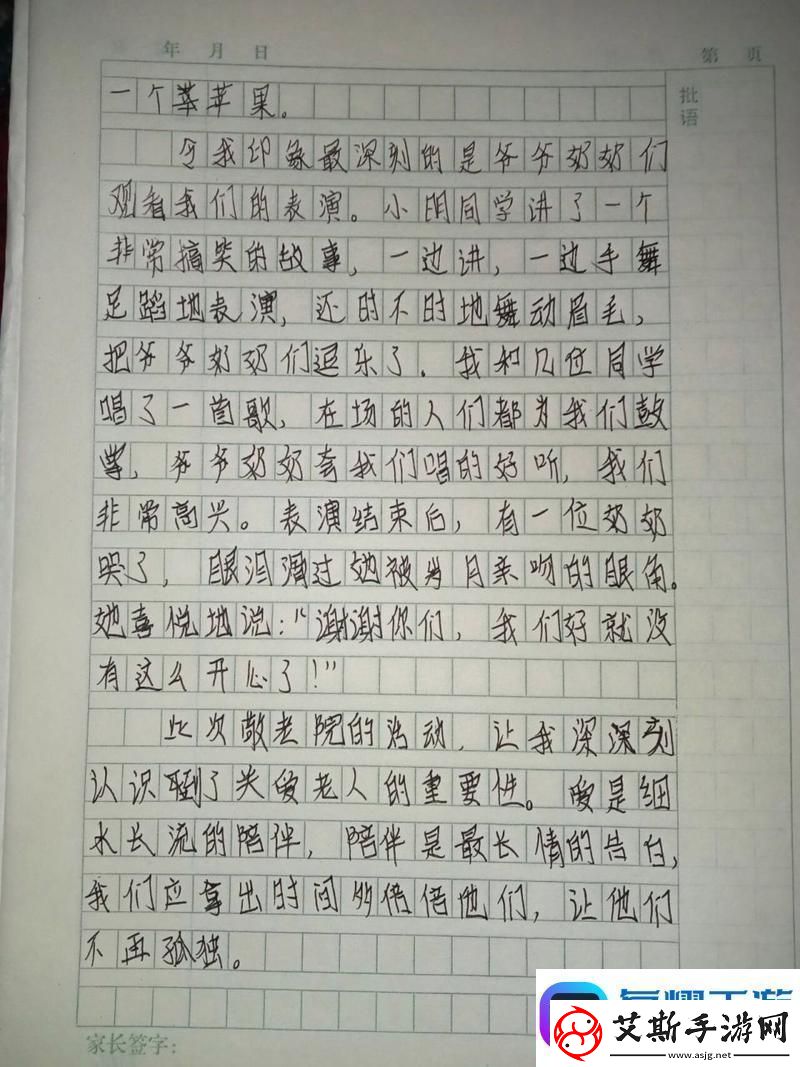 年 月 日
第 页
批语
一个苹苹果。
令我印象最深刻的是爷爷奶奶们
观看我们的表演。小明同学讲了一个
非常搞笑的故事，一边讲，一边手舞
足蹈地表演，还时不时地舞动眉毛，
把爷爷奶奶们逗乐了．我和几位同学
唱了一首歌，在场的人们都为我们鼓
掌，爷爷奶奶夸我们唱的好听，我们
非常高兴。表演结束后，有一位奶奶
哭了，眼泪滑过她被岁月亲吻的眼角。
她喜悦地说：“谢谢你们，我们好就没
有这么开心了！”
此次敬老院的活动，让我深深刻
认识到了关爱老人的重要性。爱是细
水长流的陪伴，陪伴是最长情的告白，
我们应拿出时间多陪陪他们，让他们
不再孤独。
家长签字：
艾斯手游网
www.asjg.net